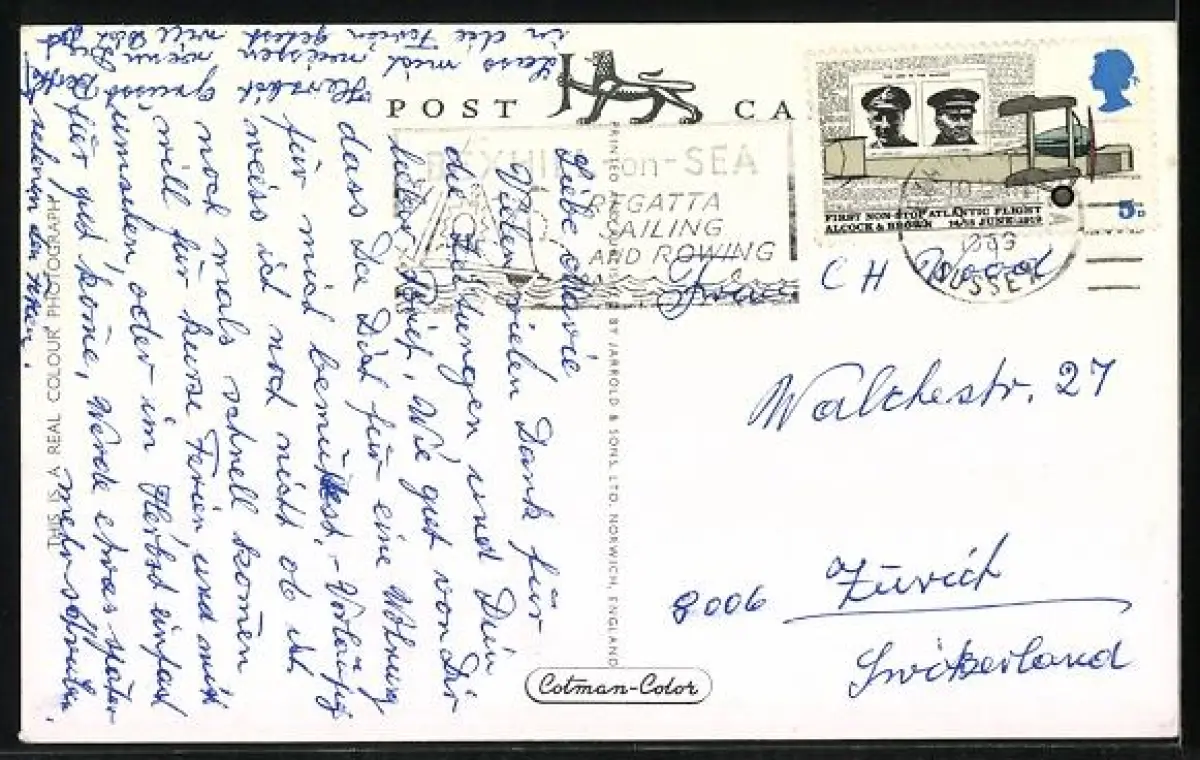 POST CA
BEXHILL-on-SEA
REGATTA
SAILING
AND ROWING
FIRST NON-STOP ATLANTIC FLIGHT
ALCOCK & BROWN 14/15 JUNE 1919
5D
SUSSEX
PRINTED AND PUBLISHED BY JARROLD & SONS LTD, NORWICH, ENGLAND
THIS IS A REAL COLOUR PHOTOGRAPH
Cotman-Color
Frau C H
Walchestr. 27
8006 Zürich
Switzerland
Liebe Marie
Vielen vielen Dank für
die Zeitungen und Dein
lieber Brief, Wie gut von Dir
dass Du Dich für eine Wohnung
für mich bemühst. - Vorläufig
weiss ich noch nicht ob ich
noch mals schnell komen
will für kurze Ferien und mich
umsehen, oder im Herbst einfach
für gut kome, Werde etwas später
mehr schreiben.
Lass mich wissen
wenn Du
in die Ferien gehst
Herzlich grüsst